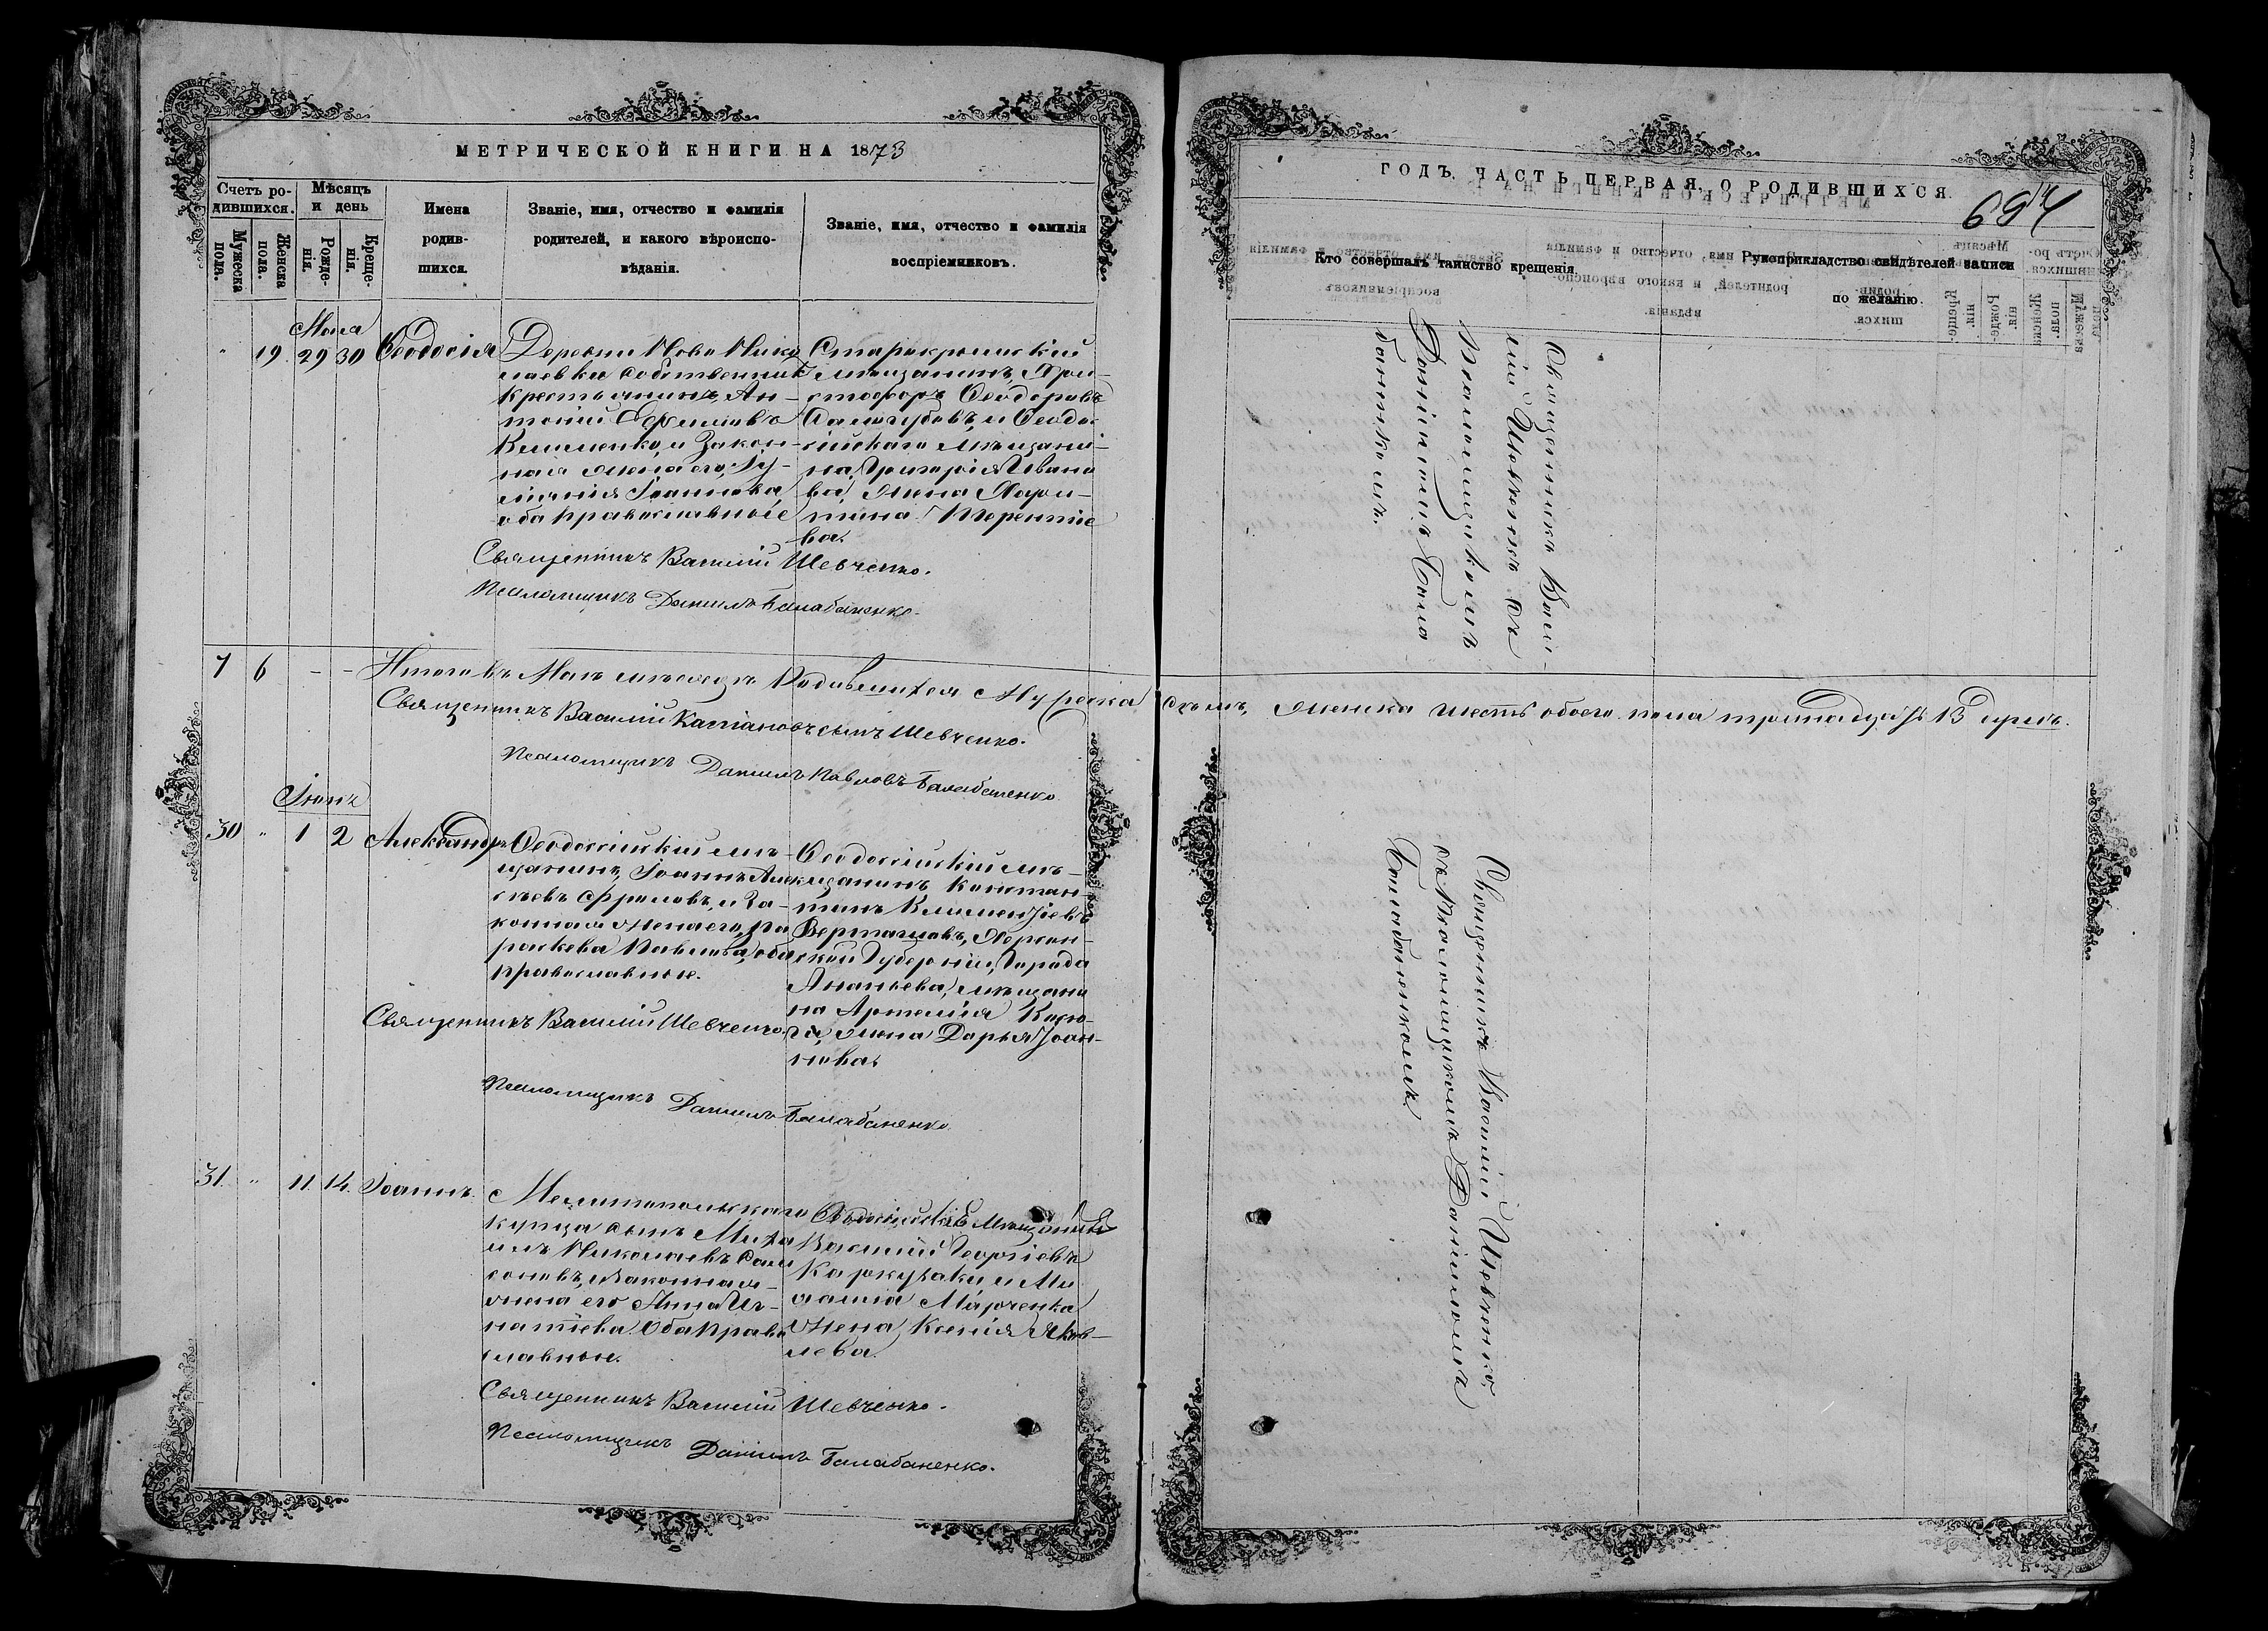 МЕТРИЧЕСКОЙ КНИГИ НА 1873
Счетъ ро-
дившихся.
Мѣсяцъ
и день
Мужеска
пола.
Женска
пола.
Рожде-
нія.
Креще-
нія.
Имена
родив-
шихся.
Званіе, имя, отчество и фамилія
родителей, и какого вѣроиспо-
вѣданія.
Званіе, имя, отчество и фамилія
воспріемниковъ.
Мая
" 19. 29 30 Ѳеодосія
Деревни Ново Нико
лаевки собственникъ
крестьянинъ, Ан-
тоній Ефимовъ
Клименко, и закон-
ная жена его,
Іоаннова,
оба православные
Старокрымскій
мѣщанинъ, Хри-
стофоръ Ѳеодоровъ
и Ѳеодо-
сійскаго мѣщани-
на, Григорія Ивано
ва, жена Хари-
тина Терентіе
ва.
Священникъ Василій Шевченко.
Псаломщикъ Даніилъ Балабаненко.
7 6 - - Итого въ Маѣ мѣсяцѣ Родившихся Мужеска седмь, Женска шесть обоего пола тринадцать 13 душъ.
Священникъ Василій Кассіановъ сынъ Шевченко.
Псаломщикъ Даніилъ Павловъ Балабаненко
Іюнь
30 " 1 2 Александръ
Ѳеодосійскій мѣ-
щанинъ, Іоаннъ Алек
сѣевъ Фроловъ, и за-
конная жена его, Па
раскева Павлова, оба
православные.
Ѳеодосійскій мѣ-
щанинъ Констан-
тинъ Климентіевъ
Херсон-
ской Губерніи, города
Ананьева, мѣщани
на Артемія
жена Дарья Іоан-
нова.
Священникъ Василій Шевченко.
Псаломщикъ Даніилъ Балабаненко
31. " 11. 14. Іоаннъ.
Мелитопольскаго
купца сынъ Миха
илъ Николаевъ Сам
соновъ, и законная
жена его Анна Иг-
натіева Оба право
славные.
Василій Георгіевъ
и Ми
Марченка
жена Ксенія Яков-
лева.
Священникъ Василій Шевченко.
Псаломщикъ Даніилъ Балабаненко.
ГОДЪ. ЧАСТЬ ПЕРВАЯ, О РОДИВШИХСЯ.
694
Кто совершалъ таинство крещенія
Рукоприкладство свидѣтелей записи
по желанію.
Священникъ Васи-
лій Шевченко съ
Псаломщикомъ
Даніиломъ Бала
баненкомъ.
Священникъ Василій Шевченко,
съ Псаломщикомъ Даніиломъ
Балабаненкомъ